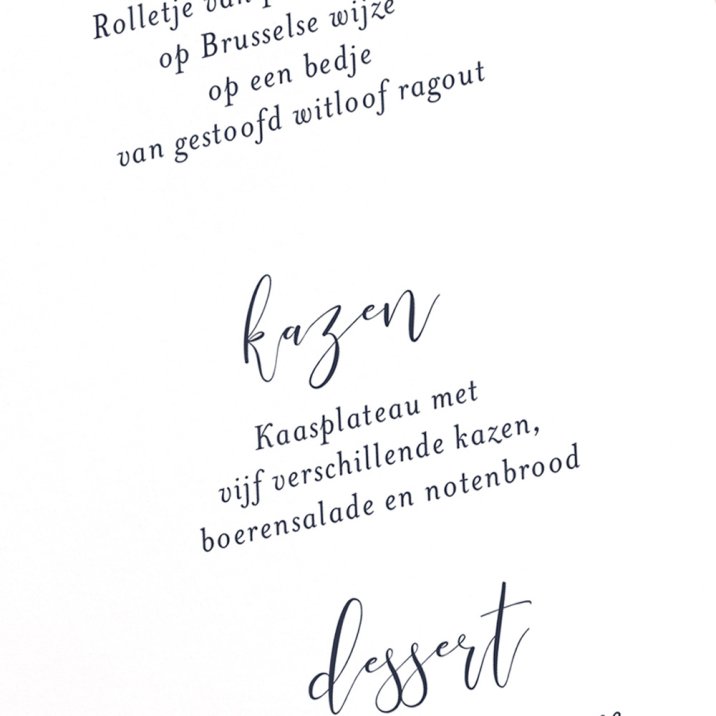 Rolletje van
op Brusselse wijze
op een bedje
van gestoofd witloof ragout
kazen
Kaasplateau met
vijf verschillende kazen,
boerensalade en notenbrood
dessert